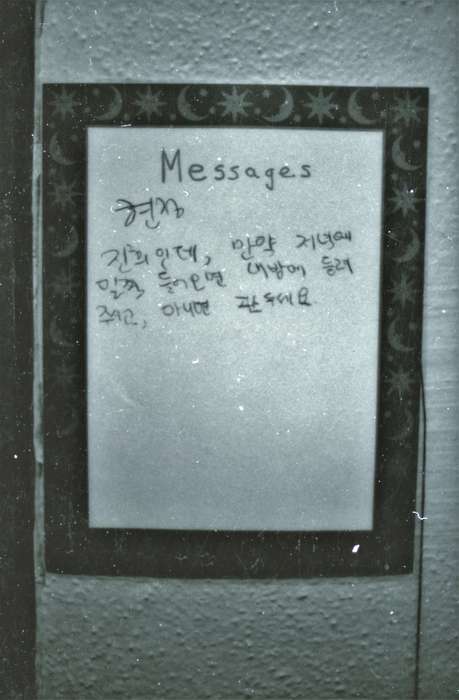 Messages
현장
진희인데, 만약 저녁에
일찍 들어오면 내방에 들려
주고, 아니면 관두세요.